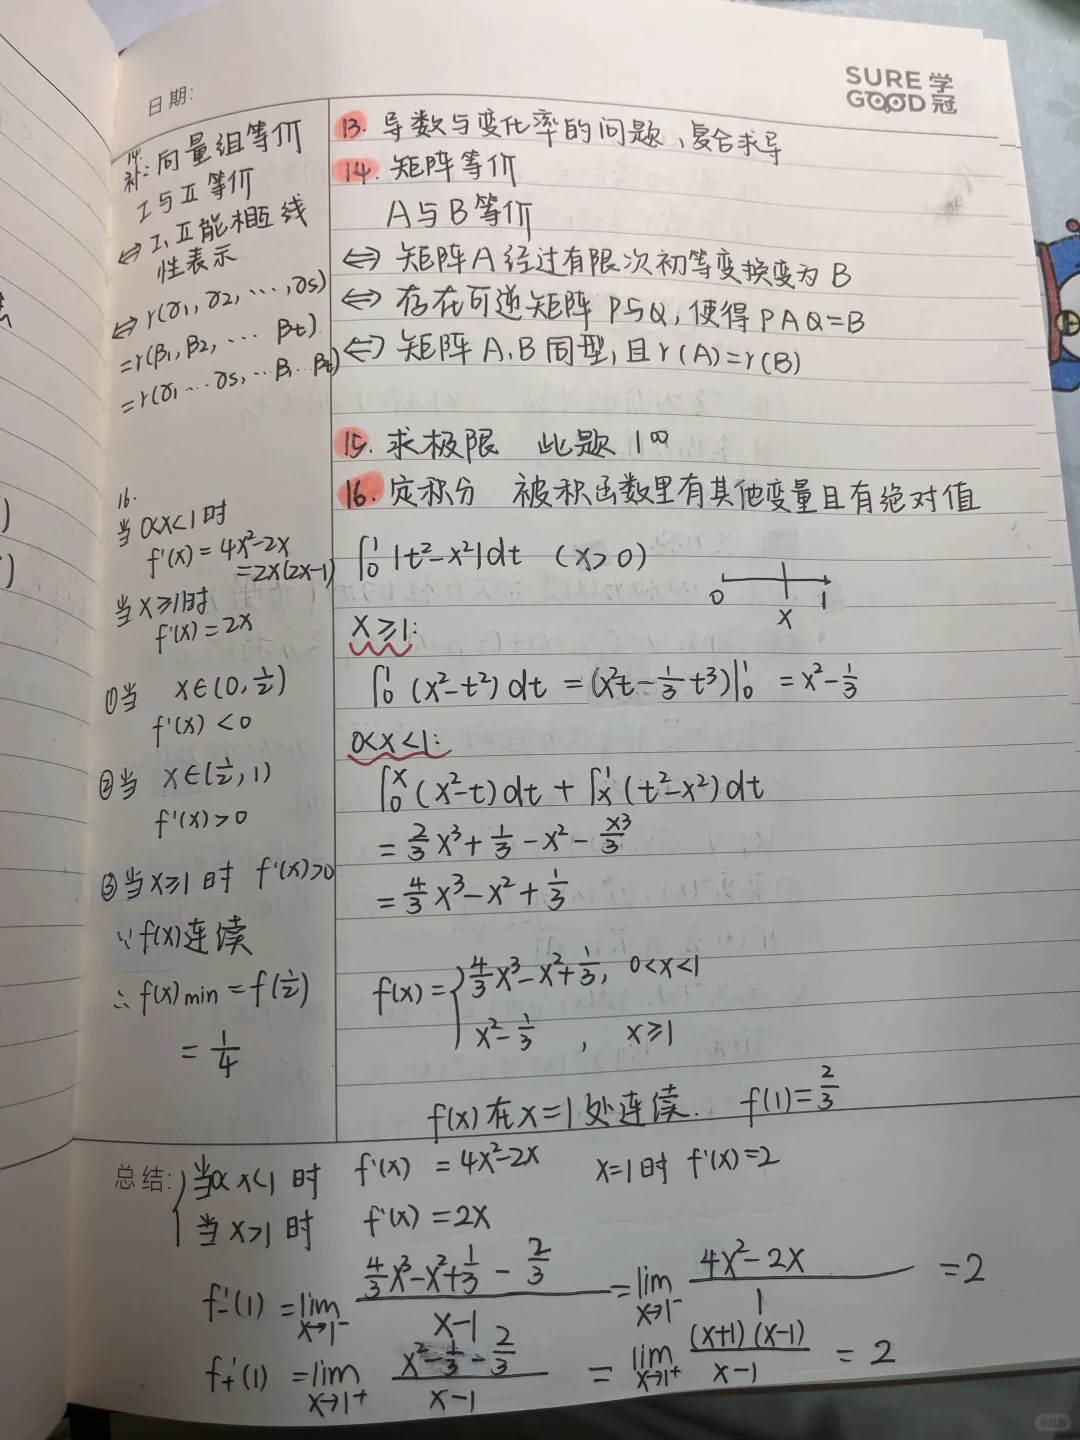 SURE 学
GOOD 冠
日期:
14
补: 向量组等价
I与II等价
⇔ I, II能相互线
性表示
⇔ r(α1, α2, …, αs)
=r(β1, β2, … βt)
=r(α1 … αs, … β1 … βt)
16.
当0<x<1时
f'(x) = 4x²-2x
=2x(2x-1)
当x≥1时
f'(x) = 2x
①当 x∈(0, 1/2)
f'(x) <0
②当 x∈(1/2, 1)
f'(x)>0
③当x≥1时 f'(x)>0
∵f(x)连续
∴ f(x)min = f(1/2)
= 1/4
13. 导数与变化率的问题、复合求导
14. 矩阵等价
A与B等价
⇔ 矩阵A经过有限次初等变换变为B
⇔ 存在可逆矩阵P与Q, 使得PAQ=B
⇔ 矩阵A、B同型, 且r(A)=r(B)
15. 求极限 此题 1^∞
16. 定积分 被积函数里有其他变量且有绝对值
∫₀¹ |t²-x²|dt (x>0)
0 x 1
x≥1:
∫₀¹ (x²-t²)dt = (x²t-1/3 t³)|₀¹ = x²-1/3
0<x<1:
∫₀ˣ (x²-t)dt + ∫ₓ¹ (t²-x²)dt
= 2/3 x³ + 1/3 - x² - x³/3
= 4/3 x³ - x² + 1/3
f(x) = { 4/3 x³-x²+1/3, 0<x<1
x²-1/3 , x≥1
f(x)在x=1处连续. f(1)=2/3
总结: { 当0<x<1时 f'(x) = 4x²-2x x=1时 f'(x)=2
当x>1时 f'(x)=2x
f'₋(1) = lim x→1⁻ (4/3 x³-x²+1/3 - 2/3)/(x-1) = lim x→1⁻ (4x²-2x)/1 =2
f'₊(1) =lim x→1⁺ (x²-1/3-2/3)/(x-1) = lim x→1⁺ (x+1)(x-1)/(x-1) = 2
小红书